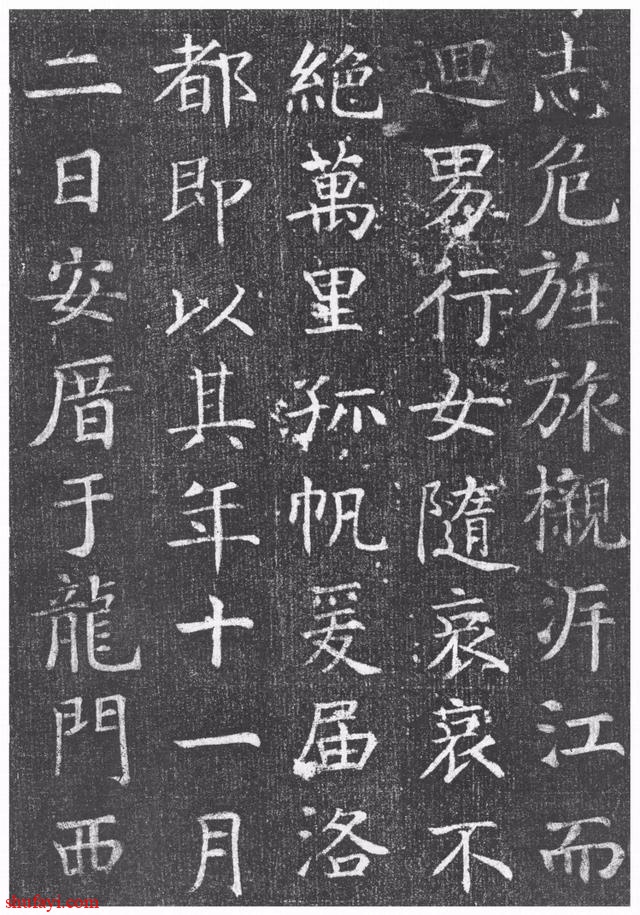 志危旌旅櫬泝江而
迴男行女隨哀哀不
絕萬里孤帆爰届洛
都即以其年十一月
二日安厝于龍門西
shufayi.com